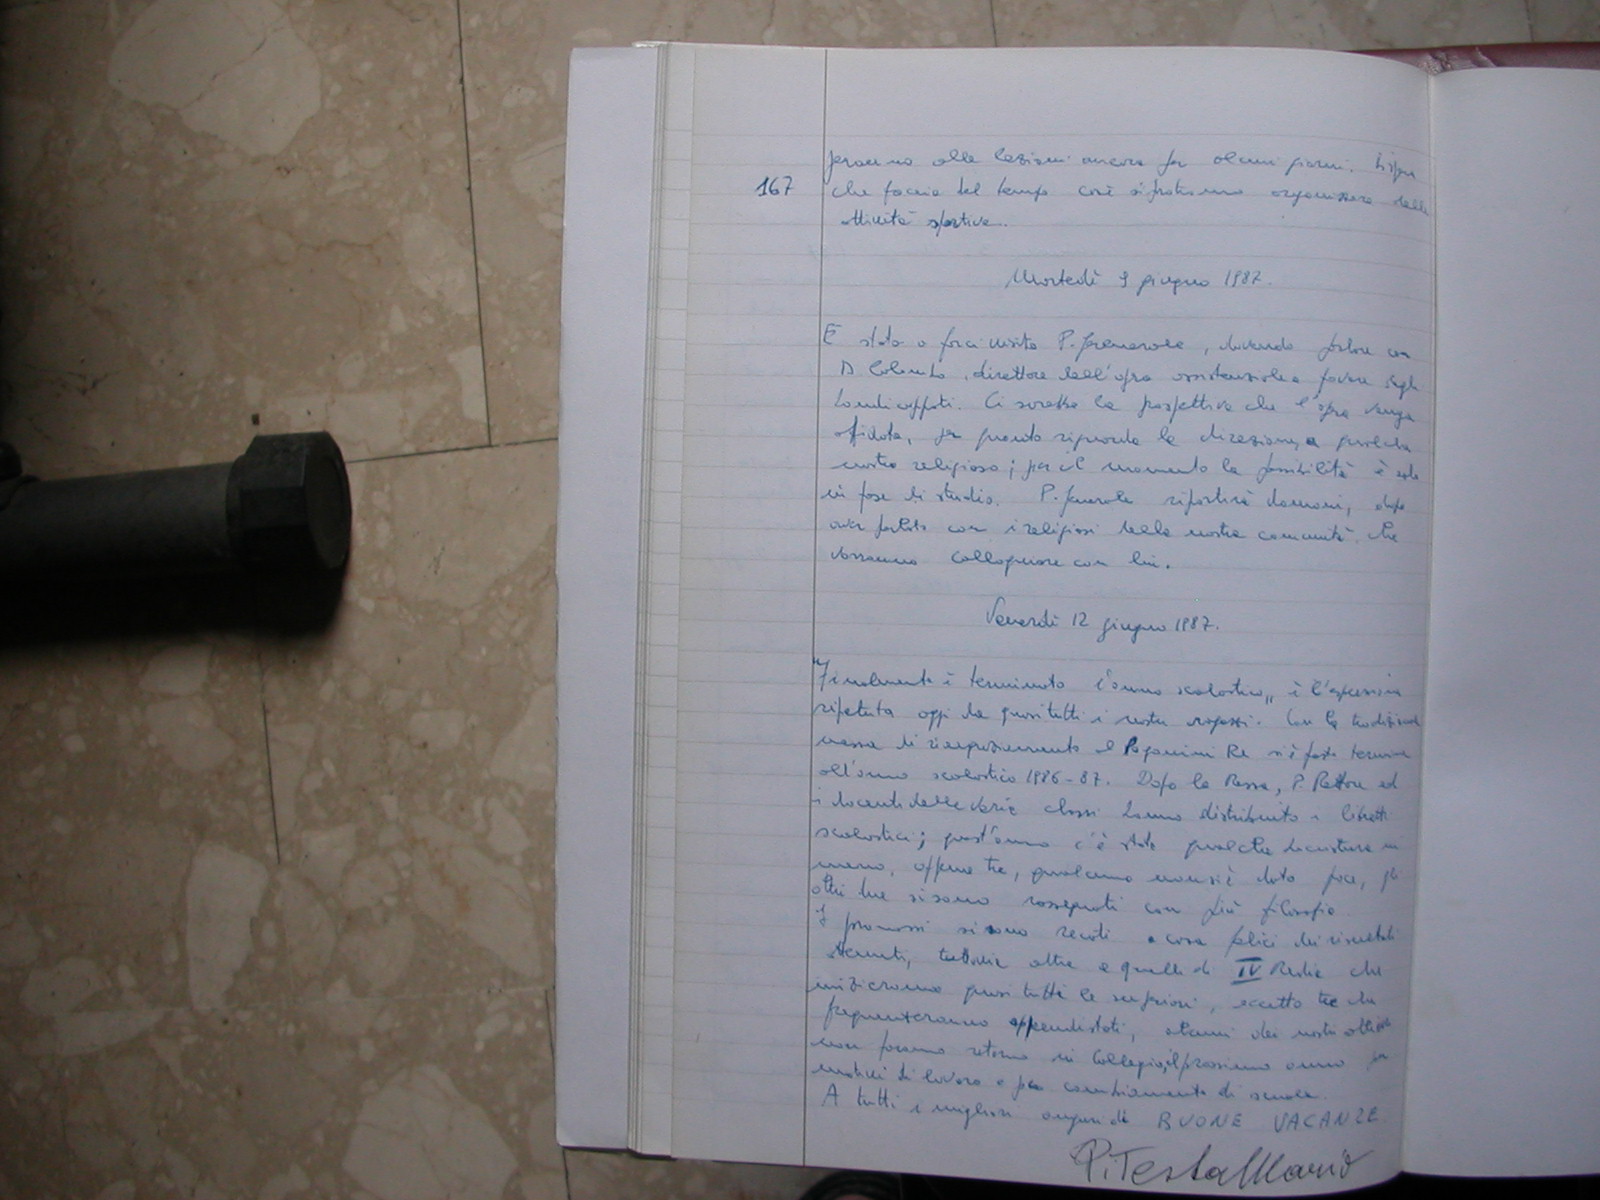 alle lezioni ancora per alcuni giorni.
167
che faccia del tempo così si potranno organizzare delle
attività sportive.
Martedì 9 giugno 1987.
È stato a farci visita P. , dovendo parlare con
D. Colombo, direttore dell'opera assistenziale a favore degli
handicappati. Ci sarebbe la prospettiva che l'opera venga
affidata, per quanto riguarda la direzione, a qualche
nostro religioso; per il momento la possibilità è solo
in fase di studio. P. ripartirà domani, dopo
aver parlato con i religiosi della nostra comunità che
vorranno colloquiare con lui.
Venerdì 12 giugno 1987.
"Finalmente è terminato l'anno scolastico" è l'espressione
ripetuta oggi da quasi tutti i nostri ragazzi. Con la tradizionale
messa di ringraziamento al Papanini Re si è posto termine
all'anno scolastico 1986-87. Dopo la Messa, P. Rettore ed
i docenti delle varie classi hanno distribuito i libretti
scolastici; quest'anno c'è stata qualche bocciatura in
meno, appena tre, qualcuno non si è dato pace, gli
altri due si sono rassegnati con più filosofia.
I promossi si sono recati a casa felici dei risultati
ottenuti, tuttavia oltre a quelli di IV che
inizieranno quasi tutti le superiori, eccetto tre che
frequenteranno apprendistati, alcuni dei nostri allievi
non faranno ritorno in Collegio, il prossimo anno per
motivi di lavoro o per cambiamento di scuola.
A tutti i migliori auguri di BUONE VACANZE
P. Testa Mario